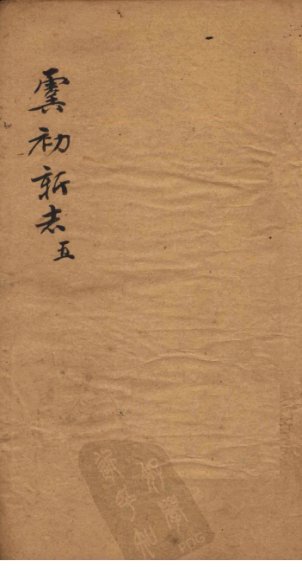 虞初新志五